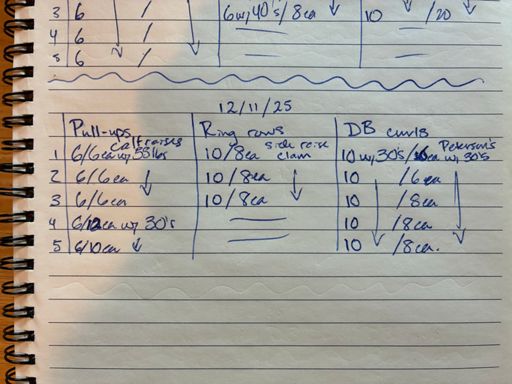 3 6 / 6 w, 40's/8ea 10 /20
4 6 /
5 6 /
12/11/25
Pull-ups Ring rows DB curls
calf raises side raise clam Peterson's
1 6/6ea w/ 55lbs 10/8ea 10 w, 30's/ ea w/ 30's
2 6/6ea 10/8ea 10 /6ea
3 6/6ea 10/8ea 10 /8ea
4 6/12ea w/ 30's 10 /8ea
5 6/10ea 10 /8ea.